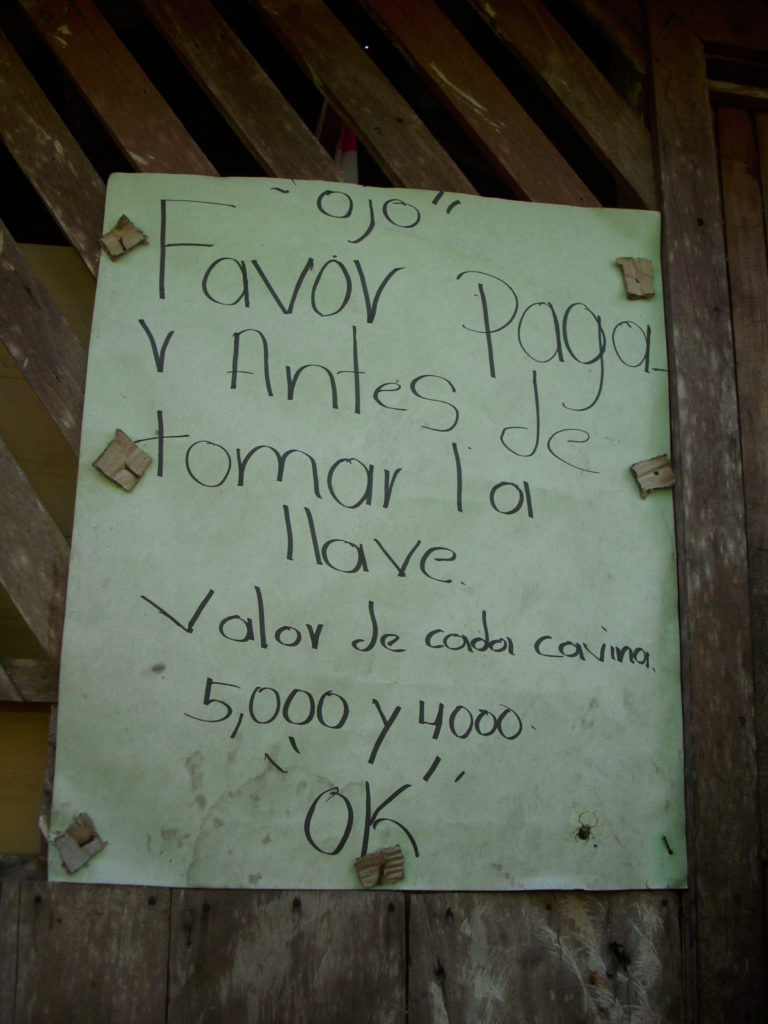 "OJO"
Favor Paga-
r Antes de
tomar la
llave.
Valor de cada cavina.
5,000 y 4000.
"OK"